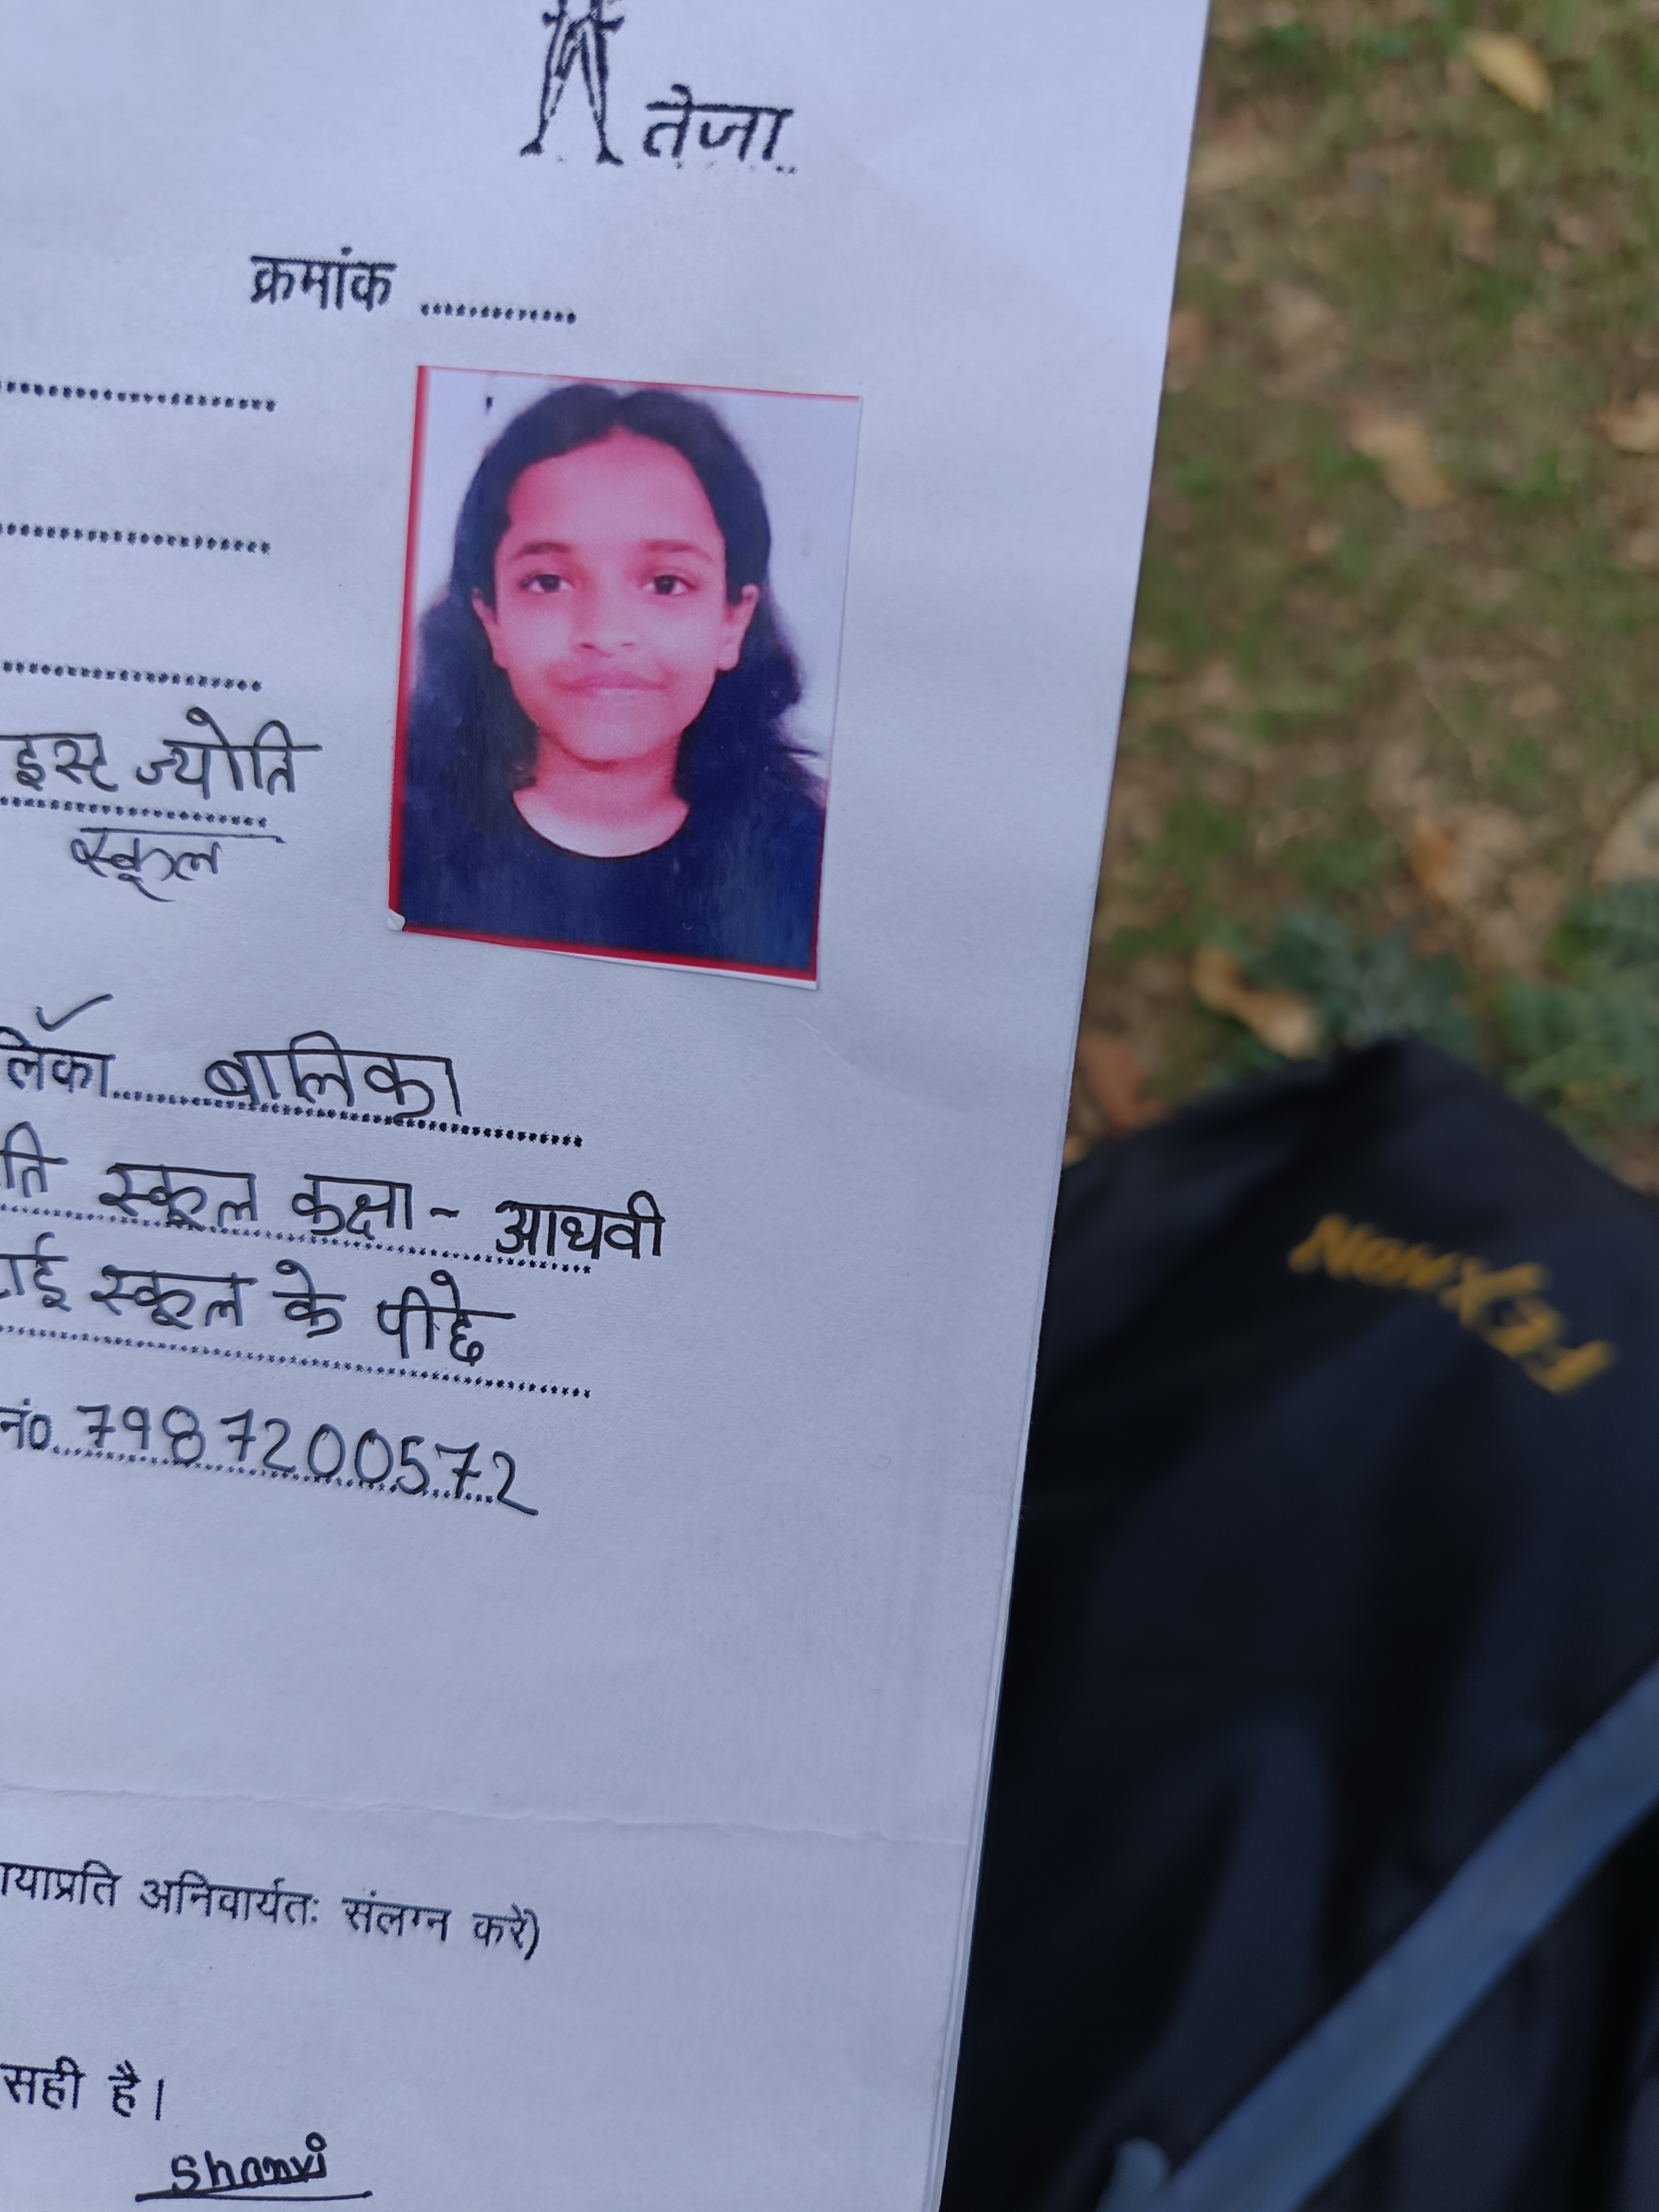 तेजा
क्रमांक ............
इस्ट ज्योति
स्कूल
लिका.... बालिका
ति स्कूल कक्षा - आथवी
ाई स्कूल के पीछे
नं0. 7987200572
ायाप्रति अनिवार्यतः संलग्न करें)
सही है।
Shanvi
FEXMON